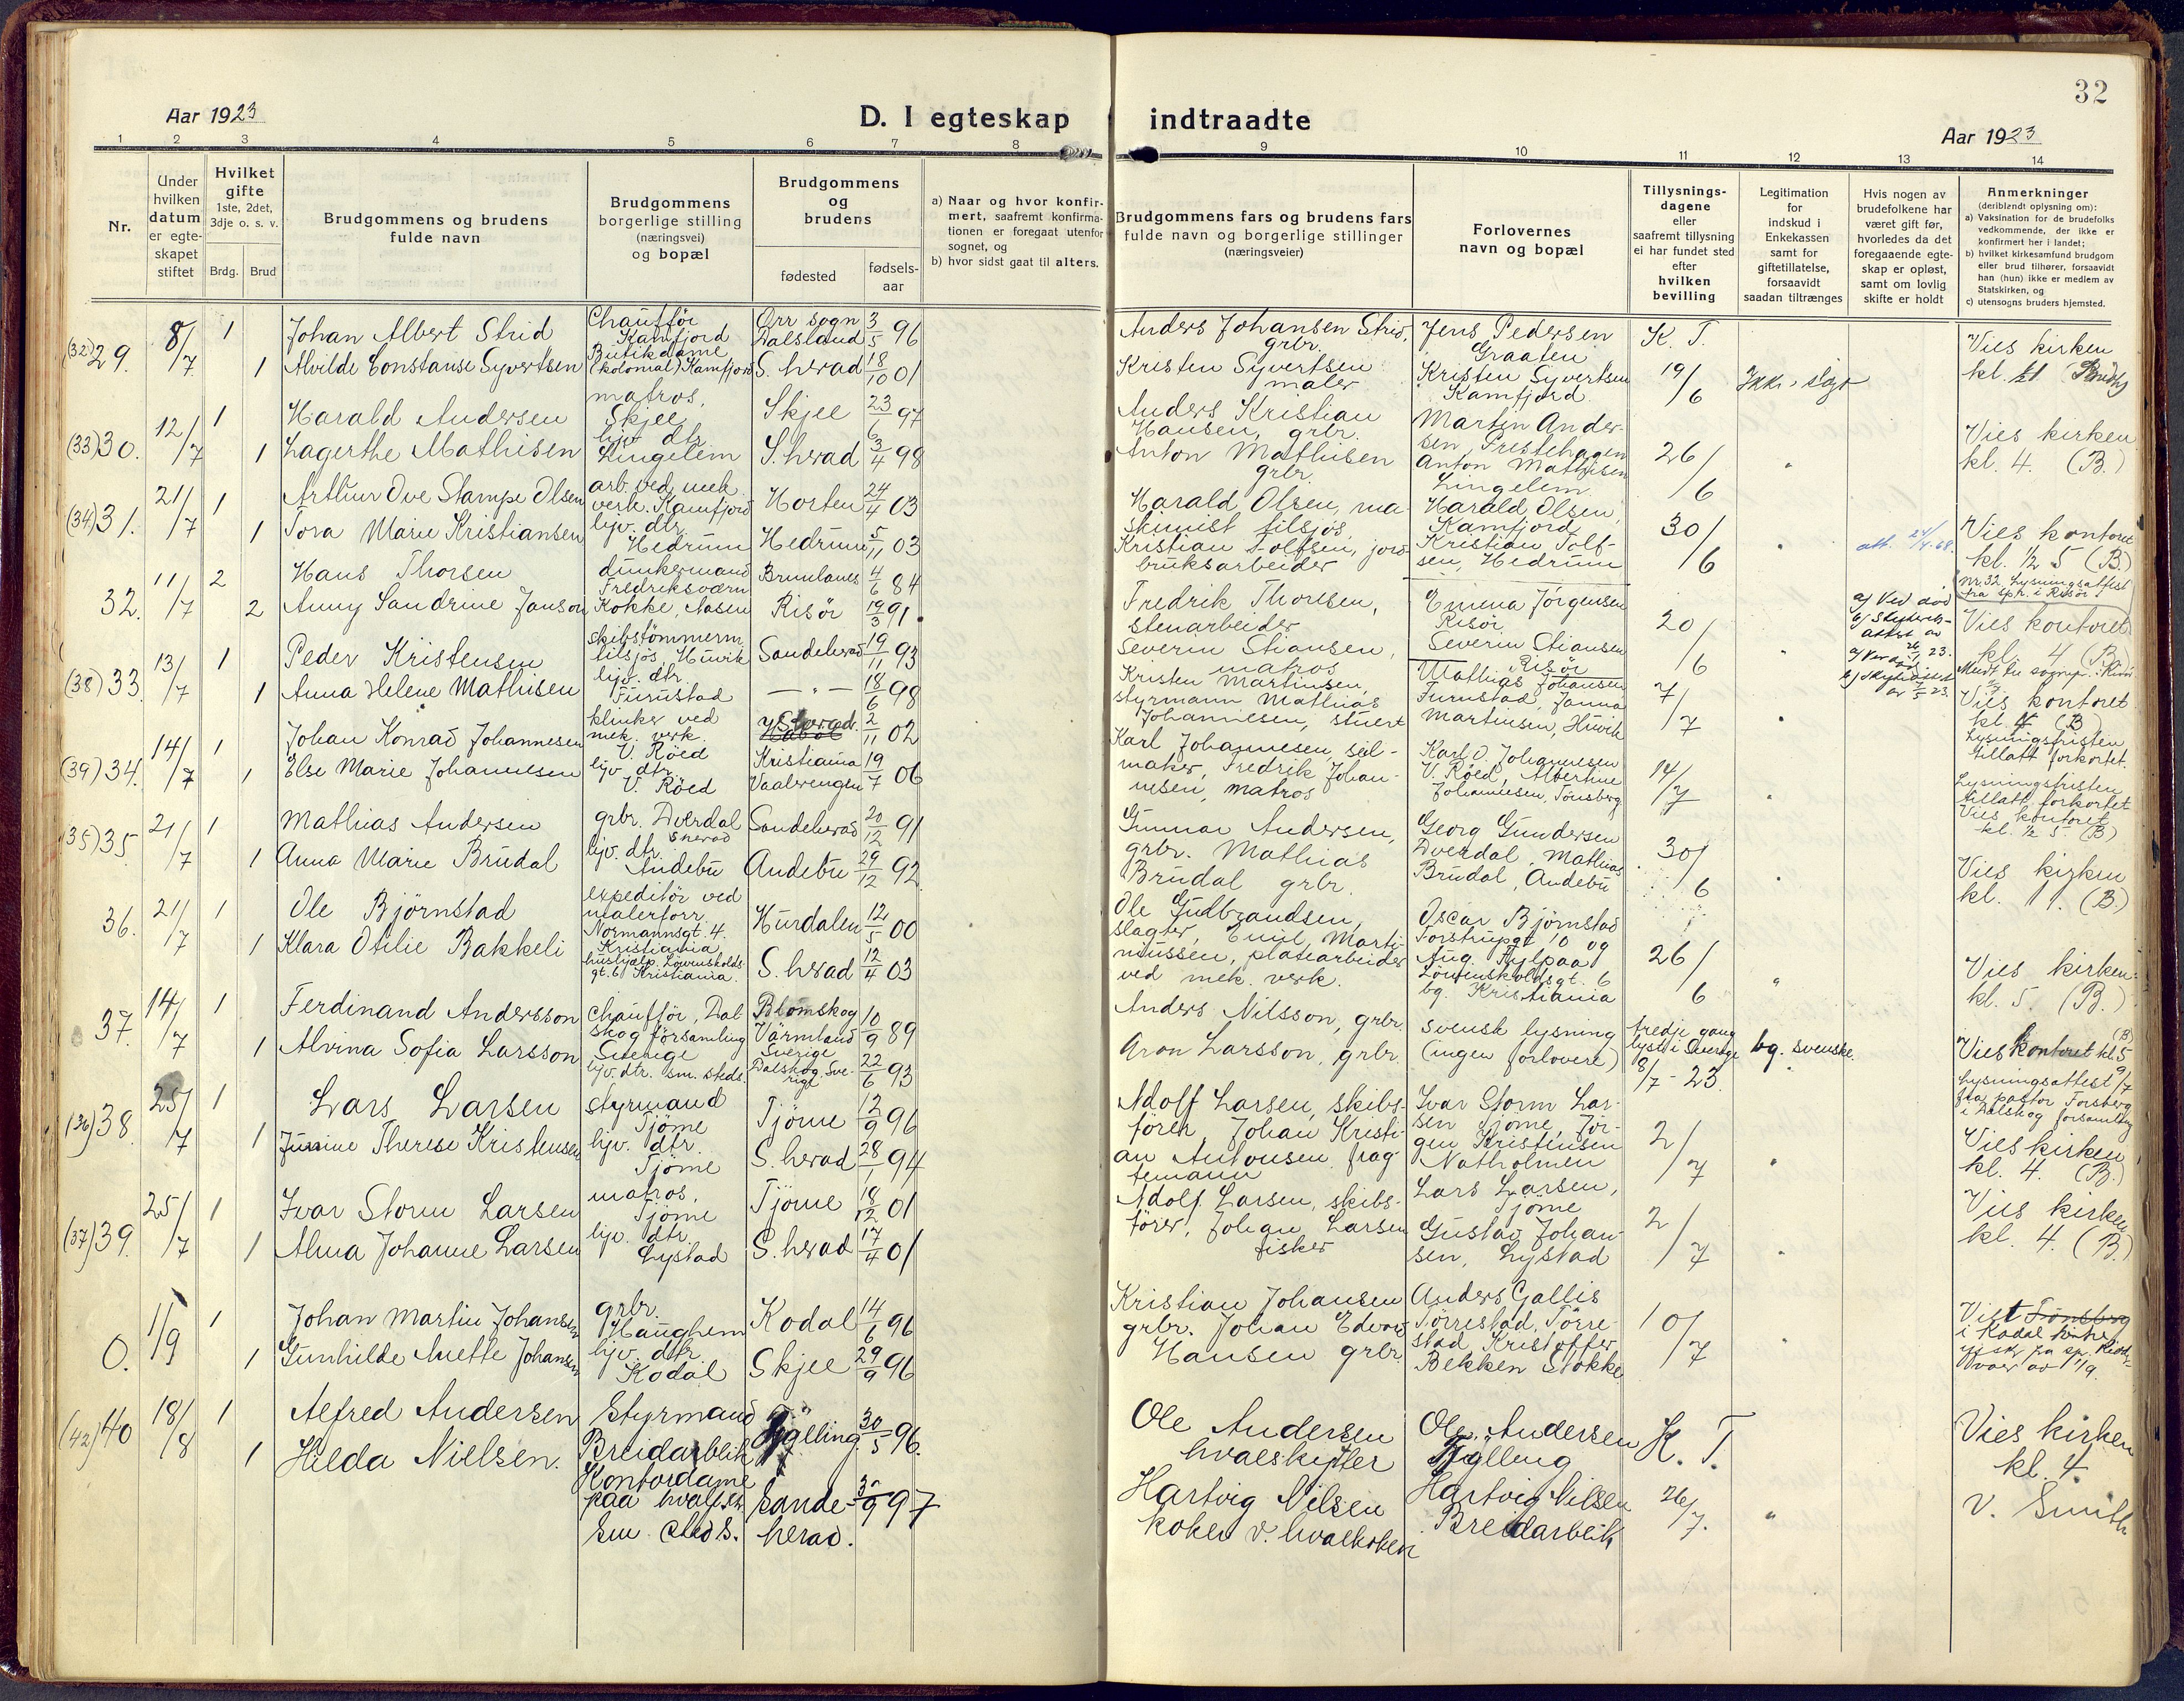 32
Aar 1923
D. I egteskap indtraadte
Aar 1923
1 2 3 4 5 6 7 8 9 10 11 12 13 14
Nr.
Under hvilken datum er egteskapet stiftet
Hvilket gifte
1ste, 2det, 3dje o. s. v.
Brdg. Brud
Brudgommens og brudens fulde navn
Brudgommens borgerlige stilling (næringsvei) og bopæl
Brudgommens og brudens
fødested
fødsels-aar
a) Naar og hvor konfirmert, saafremt konfirmationen er foregaat utenfor sognet, og
b) hvor sidst gaat til alters.
Brudgommens fars og brudens fars fulde navn og borgerlige stillinger (næringsveier)
Forlovernes navn og bopæl
Tillysningsdagene eller saafremt tillysning ei har fundet sted efter hvilken bevilling
Legitimation for indskud i Enkekassen samt for giftetillatelse, forsaavidt saadan tiltrænges
Hvis nogen av brudefolkene har været gift før, hvorledes da det foregaaende egteskap er opløst, samt om lovlig skifte er holdt
Anmerkninger
(deriblandt oplysning om):
a) Vaksination for de brudefolks vedkommende, der ikke er konfirmert her i landet;
b) hvilket kirkesamfund brudgom eller brud tilhører, forsaavidt han (hun) ikke er medlem av Statskirken, og
c) utensogns bruders hjemsted.
(32) 29. 8/7 1 Johan Albert Strid Chaufför Kamfjord Örr sogn Dalsland 3/5 96 Anders Johansen Strid, grbr. Jens Pedersen Graaten K. T.
1 Alvilde Constanse Syvertsen Butikdame (kolonial) Kamfjord S. herad 18/10 01 Kristen Syvertsen maler Kristen Syvertsen Kamfjord 19/6 Ikke slegt Vies kirken
(33) 30. 12/7 1 Harald Andersen matros, Skjee Skjee 23/6 97 Anders Kristian Hansen, grbr. Martin Andersen Prestehagen
1 Lagerthe Mathisen hjv. dtr. Lingelem S. herad 3/4 98 Anton Mathisen grbr. Anton Mathisen Lingelem 26/6 " Vies kirken kl. 4. (B.)
(34) 31. 21/7 1 Arthur Ove Stampe Olsen arb. ved mek. verk. Kamfjord Horten 24/4 03 Harald Olsen, maskinist tilsjös Harald Olsen, Kamfjord
1 Tora Marie Kristiansen hjv. dtr. Hedrum Hedrum 5/11 03 Kristian Tolfsen, jordbruksarbeider Kristian Tolfsen, Hedrum 30/6 " att. 24/4-68. Vies kontoret kl. 1/2 5 (B.)
32. 11/7 2 Hans Thorsen dunkermand Fredriksværn Brunlanes 4/6 84 Fredrik Thorssen, stenarbeider Emma Jörgensen Risör Nr. 32 Lysningsattest fra spr. i Risör.
2 Anny Sandrine Janson Kokke, Aasen Risör 19/3 91. Severin Stiansen, matros Severin Stiansen Risör 20/6 " a/ Ved död Vies kontoret kl. 4 (B.)
(38) 33. 13/7 1 Peder Kristensen skibstömmerm. tilsjös, Huvik Sandeherad 19/11 93 Kristen Martinsen, styrmann Mathias Johansen Furustad, Janna Martinsen, Huvik
1 Anna Helene Mathisen hjv. dtr. Furustad — " — 18/6 98 Mathias Johannesen, stuert 7/7 " Vies kontoret kl. 4 (B) Lysningsfristen tillatt forkortet.
(39) 34. 14/7 1 Johan Konrad Johannesen klinker ved mek. verk. V. Röed S. herad. 2/11 02 Karl Johannesen, seilmaker, Karl O. Johannesen V. Röed,
1 Else Marie Johannesen hjv. dtr. V. Röed Kristiania Vaalerengen 19/7 06 Fredrik Johannesen, matros Albertine Johannesen, Tönsberg 14/7 " Lysningsfristen tillatt forkortet Vies kontoret kl. 1/2 5 (B)
(35) 35. 21/7 1 Mathias Andersen grbr. Dverdal S. herad Sandeherad 20/12 91 Gunnar Andersen, grbr. Georg Gundersen Dverdal,
1 Anna Marie Brudal hjv. dtr. Andebu Andebu 29/12 92 Mathias Brudal grbr. Mathias Brudal, Andebu 30/6 " Vies kirken kl. 11. (B.)
36. 21/7 1 Ole Björnstad expeditör ved malerforr. Normannsgt. 4. Kristiania Hurdalen 12/5 00 Ole Gudbrandsen, slagter, Oscar Björnstad Torstrupgt 10 og
1 Klara Otilie Bakkeli hushjælp. Lövenskiolds gt. 6 Kristiania. S. herad 12/4 03 Emil Martinussen, platearbeider ved mek. verk. Aug. Kylpaa Lövenskioldsgt. 6 bg. Kristiania 26/6 " Vies kirken kl. 5. (B.)
37. 14/7 1 Ferdinand Andersson chaufför, Dalskog församling Sverige Blomskog Värmland Sverige 10/9 89 Anders Nilsson, grbr. svensk lysning (ingen forlovere) tredje gang lyst i Sverige 8/7-23 bg. svenske.
1 Alvina Sofia Larsson hjv. dtr. sm. steds. Dalskog Sverige 22/6 93 Aron Larsson, grbr Vies kontoret kl. 5 (B) Lysningsattest 9/7 fra pastor Forsberg i Dalskog forsamling
(36) 38. 25/7 1 Lars Larsen styrmand Tjöme Tjöme 12/9 96 Adolf Larsen, skibsförer, Ivar Storm Larsen Tjöme,
1 Junine Therese Kristensen hjv. dtr. Tjöme S. herad 28/1 94 Johan Kristian Antonsen fragtemann Jörgen Kristensen Natholmen 2/7 " Vies kirken kl. 4. (B.)
(37) 39. 25/7 1 Ivar Storm Larsen matros, Tjöme Tjöme 18/12 01 Adolf Larsen, skibsförer, Lars Larsen, Tjöme
1 Alma Johanne Larsen hjv. dtr. Lystad S. herad 17/4 01 Johan Larsen fisker Gustav Johansen, Lystad 2/7 " Vies kirken kl. 4. (B.)
0. 1/9 1 Johan Martin Johansen grbr. Haughem Kodal 14/6 96 Kristian Johansen grbr. Anders Gallis Törrestad, Törrestad
1 Gunhilde Anette Johansen hjv. dtr. Kodal Skjee 29/9 96 Johan Edvard Hansen grbr. Kristoffer Bekken Stokke 10/7 " Viet Tönsberg i Kodal kirke
(42) 40 18/8 1 Alfred Andersen Styrmand Breidablik Fjælling 30/5 96. Ole Andersen hvalskytter Ole Andersen K. T.
1 Hilda Nielsen. Kontordame paa hvalfsk. sm. steds. Sandeherad. 97 Hartvig Nilsen koker v. hvalkoken Hartvig Nilsen Breidablik 26/7. " Vies kirken kl. 4. v. Smith